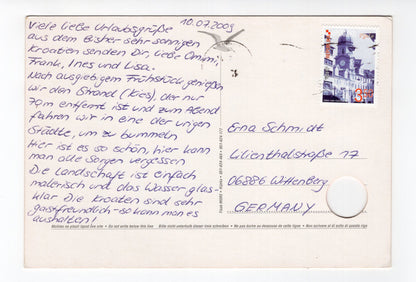 10.07.2009
Viele liebe Urlaubsgrüße
aus dem bisher sehr sonnigen
Kroatien senden Dir, liebe Omimi,
Frank, Ines und Lisa.
Nach ausgiebigem Frühstück genießen
wir den Strand (Kies), der nur
70m entfernt ist und zum Abend
fahren wir in eine der urigen
Städte, um zu bummeln
Hier ist es so schön, hier kann
man alle Sorgen vergessen
Die Landschaft ist einfach
malerisch und das Wasser glas-
klar Die Kroaten sind sehr
gastfreundlich - so kann man es
aushalten!
Erna Schmidt
Lilienthalstraße 17
06886 Wittenberg
GERMANY
Molimo ne pisati ispod ove crte • Do not write below this line • Bitte nicht unterhalb dieser Linie schreiben • Ne pas écrire au-dessous de cette ligne • Non scrivere al di sotto di questa riga